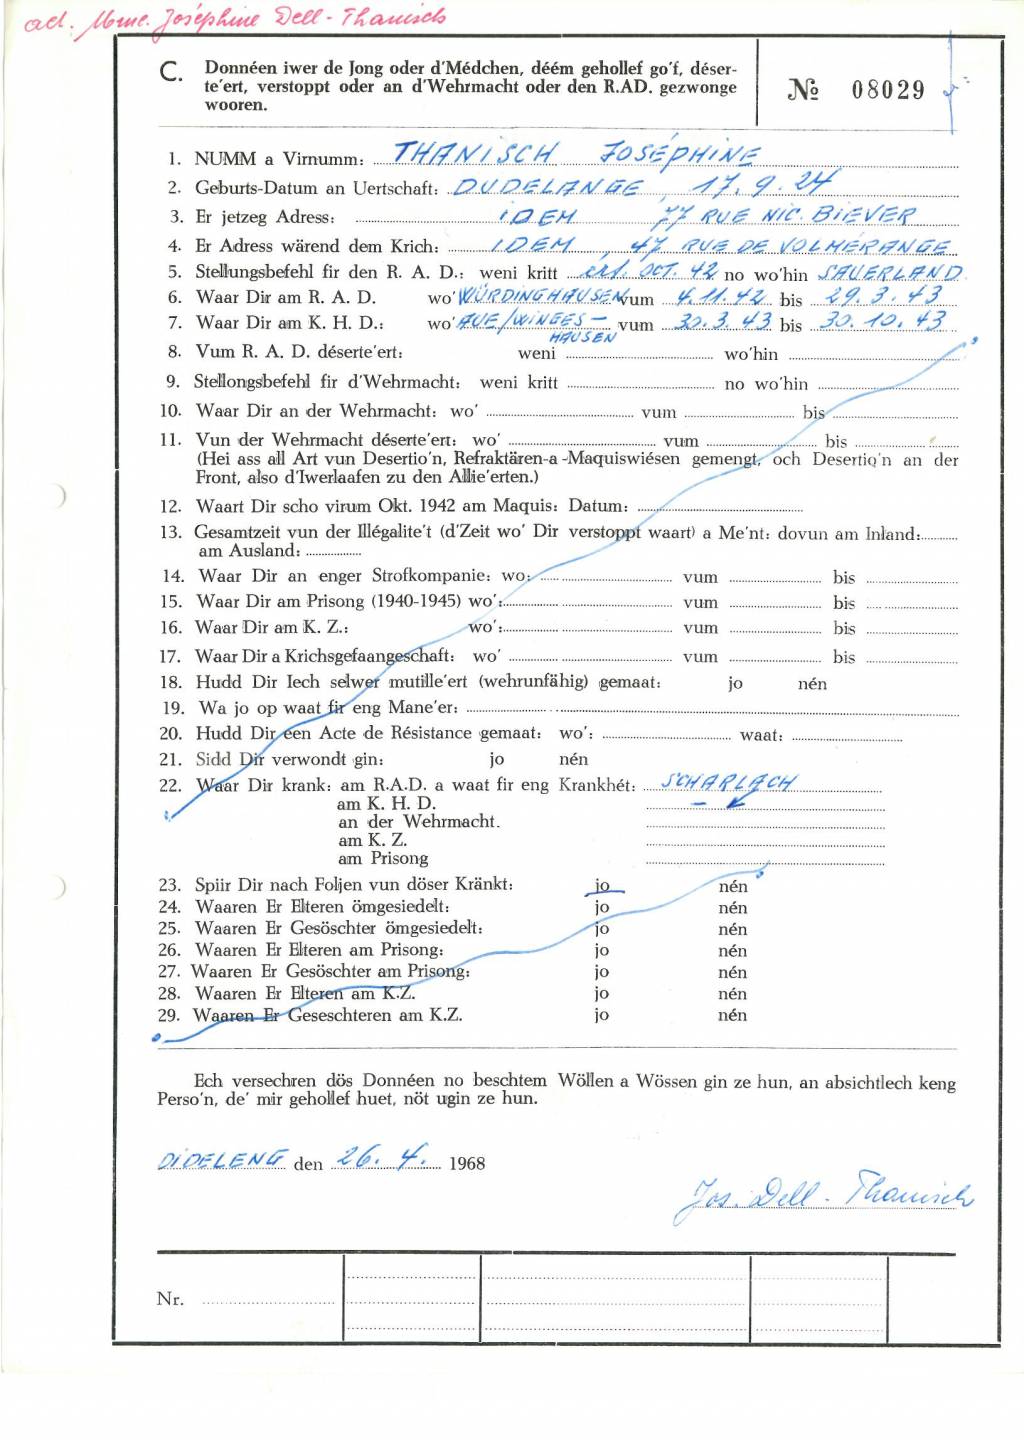 ad. Mme. Joséphine Dell-Thanisch
C. Donnéen iwer de Jong oder d'Médchen, déém gehollef go'f, déser-
te'ert, verstoppt oder an d'Wehrmacht oder den R.AD. gezwonge
wooren.
№ 08029
1. NUMM a Virnumm: THANISCH JOSÉPHINE
2. Geburts-Datum an Uertschaft: DUDELANGE, 17.9.24
3. Er jetzeg Adress: IDEM 77 RUE NIC. BIEVER
4. Er Adress wärend dem Krich: IDEM, 47 RUE DE VOLMÉRANGE
5. Stellungsbefehl fir den R. A. D.: weni kritt OCT. 42 no wo'hin SAUERLAND
6. Waar Dir am R. A. D. wo' WÜRDINGHAUSEN vum 4.11.42 bis 29.3.43
7. Waar Dir am K. H. D.: wo' AUE/WINGES- vum 30.3.43 bis 30.10.43
HAUSEN
8. Vum R. A. D. déserte'ert: weni wo'hin
9. Stellongsbefehl fir d'Wehrmacht: weni kritt no wo'hin
10. Waar Dir an der Wehrmacht: wo' vum bis
11. Vun der Wehrmacht déserte'ert: wo' vum bis
(Hei ass all Art vun Desertio'n, Refraktären-a-Maquiswiésen gemengt, och Desertio'n an der
Front, also d'Iwerlaafen zu den Allie'erten.)
12. Waart Dir scho virum Okt. 1942 am Maquis: Datum:
13. Gesamtzeit vun der Illégalite't (d'Zeit wo' Dir verstoppt waart) a Me'nt: dovun am Inland:
am Ausland:
14. Waar Dir an enger Strofkompanie: wo: vum bis
15. Waar Dir am Prisong (1940-1945) wo': vum bis
16. Waar Dir am K. Z.: wo': vum bis
17. Waar Dir a Krichsgefaangeschaft: wo' vum bis
18. Hudd Dir Iech selwer mutille'ert (wehrunfähig) gemaat: jo nén
19. Wa jo op waat fir eng Mane'er:
20. Hudd Dir een Acte de Résistance gemaat: wo': waat:
21. Sidd Dir verwondt gin: jo nén
22. Waar Dir krank: am R.A.D. a waat fir eng Krankhét: SCHARLACH
am K. H. D. –
an der Wehrmacht.
am K. Z.
am Prisong
23. Spiir Dir nach Foljen vun döser Kränkt: jo nén
24. Waaren Er Elteren ömgesiedelt: jo nén
25. Waaren Er Gesöschter ömgesiedelt: jo nén
26. Waaren Er Elteren am Prisong: jo nén
27. Waaren Er Gesöschter am Prisong: jo nén
28. Waaren Er Elteren am K.Z. jo nén
29. Waaren Er Geseschteren am K.Z. jo nén
Ech versechren dös Donnéen no beschtem Wöllen a Wössen gin ze hun, an absichtlech keng
Perso'n, de' mir gehollef huet, nöt ugin ze hun.
DIDELENG den 26.4. 1968
Jos. Dell-Thanisch
Nr.